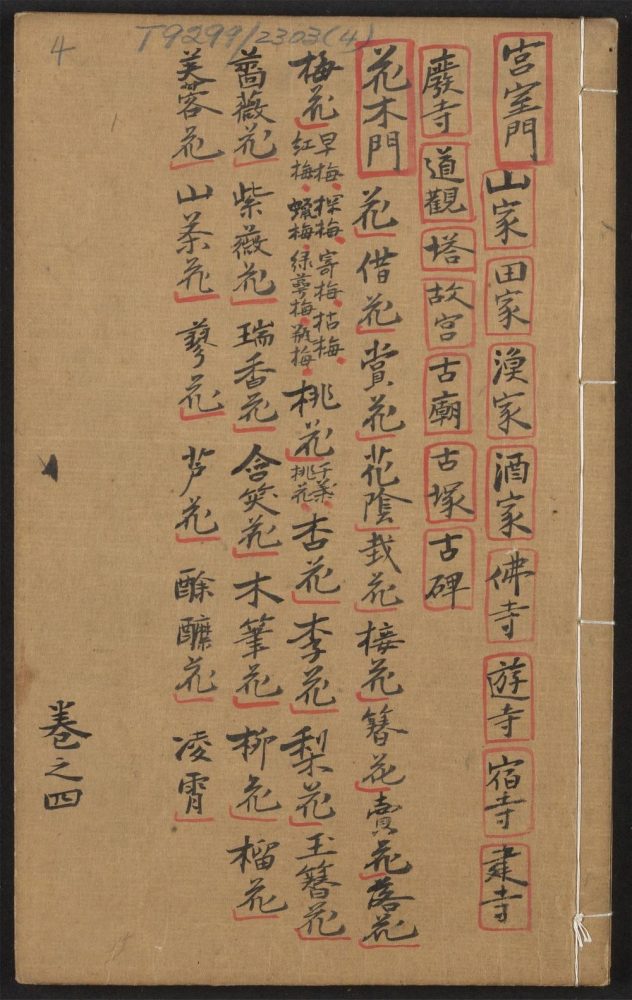 4
T9299/2303(4)
宮室門 山家 田家 漁家 酒家 佛寺 遊寺 宿寺 建寺
廢寺 道觀 塔 故宮 古廟 古塚 古碑
花木門 花 借花 賞花 花陰 栽花 接花 簪花 賣花 落花
梅花 早梅 探梅 寄梅 枯梅 紅梅 蠟梅 綠萼梅 瓶梅 桃花 千葉桃花 杏花 李花 梨花 玉簪花
薔薇花 紫薇花 瑞香花 含笑花 木筆花 柳花 榴花
芙蓉花 山茶花 蓼花 芦花 酴醿花 凌霄
卷之四